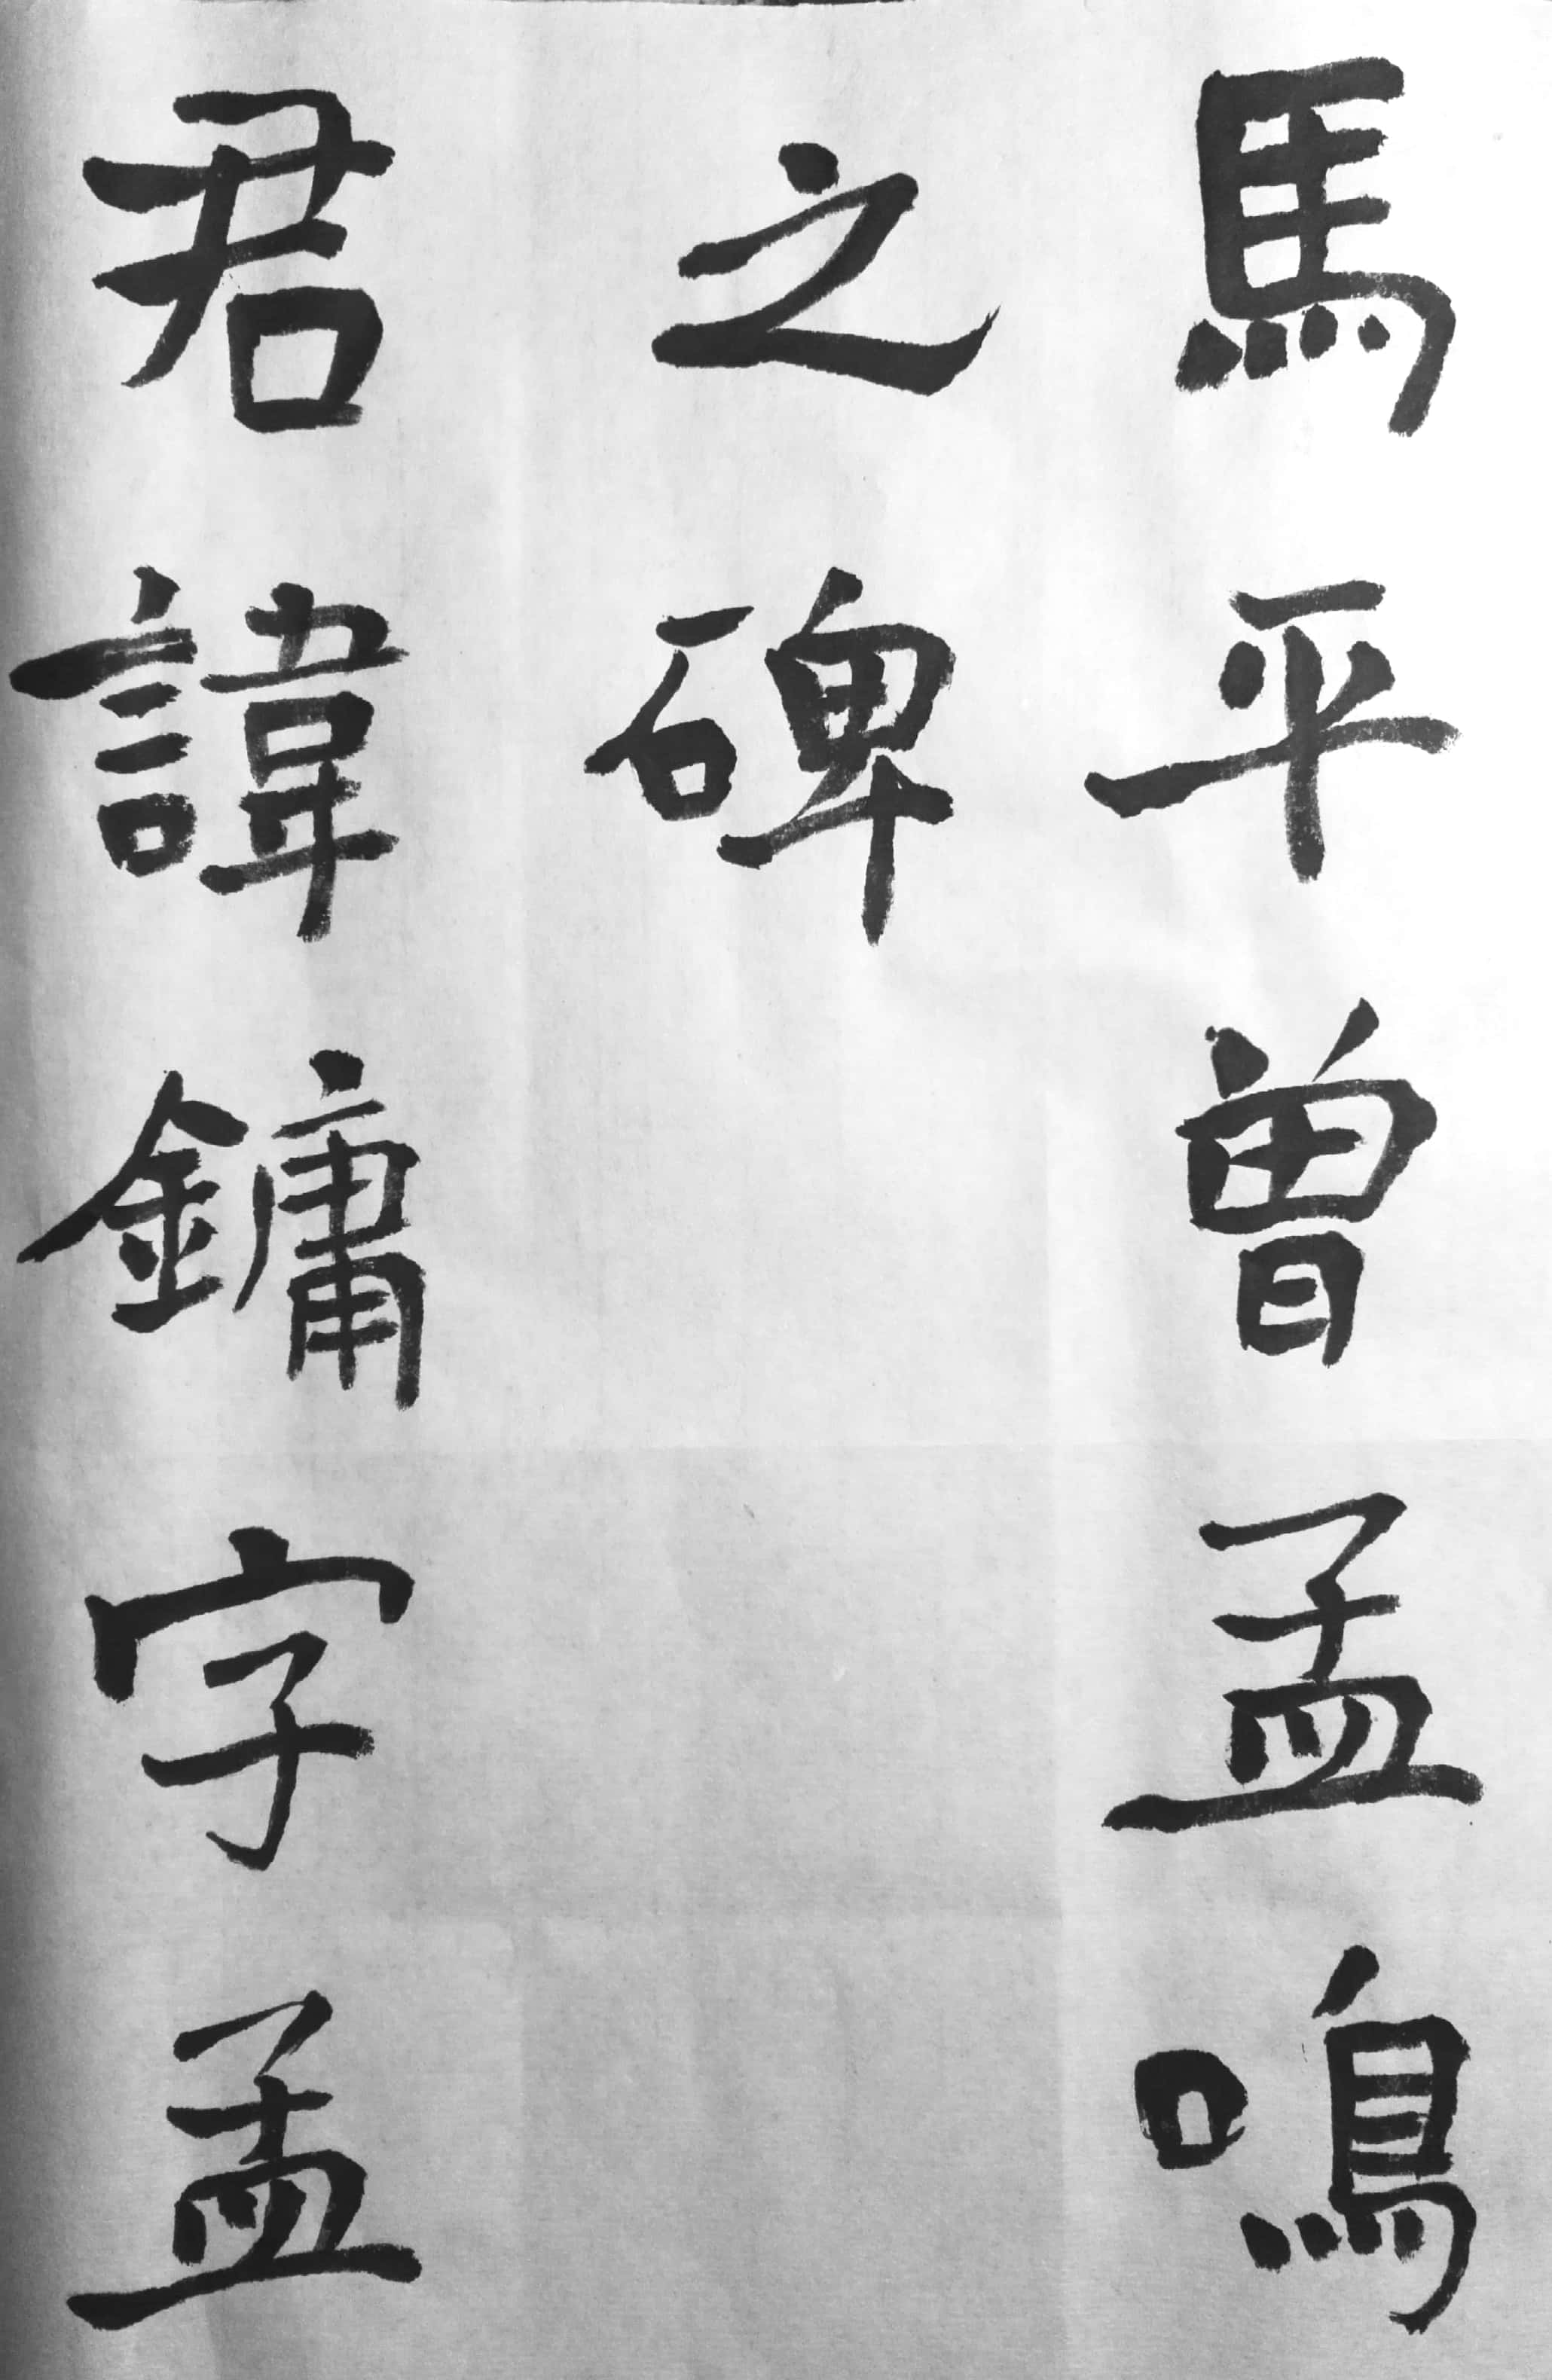 馬平曾孟鳴
之碑
君諱鏞字孟